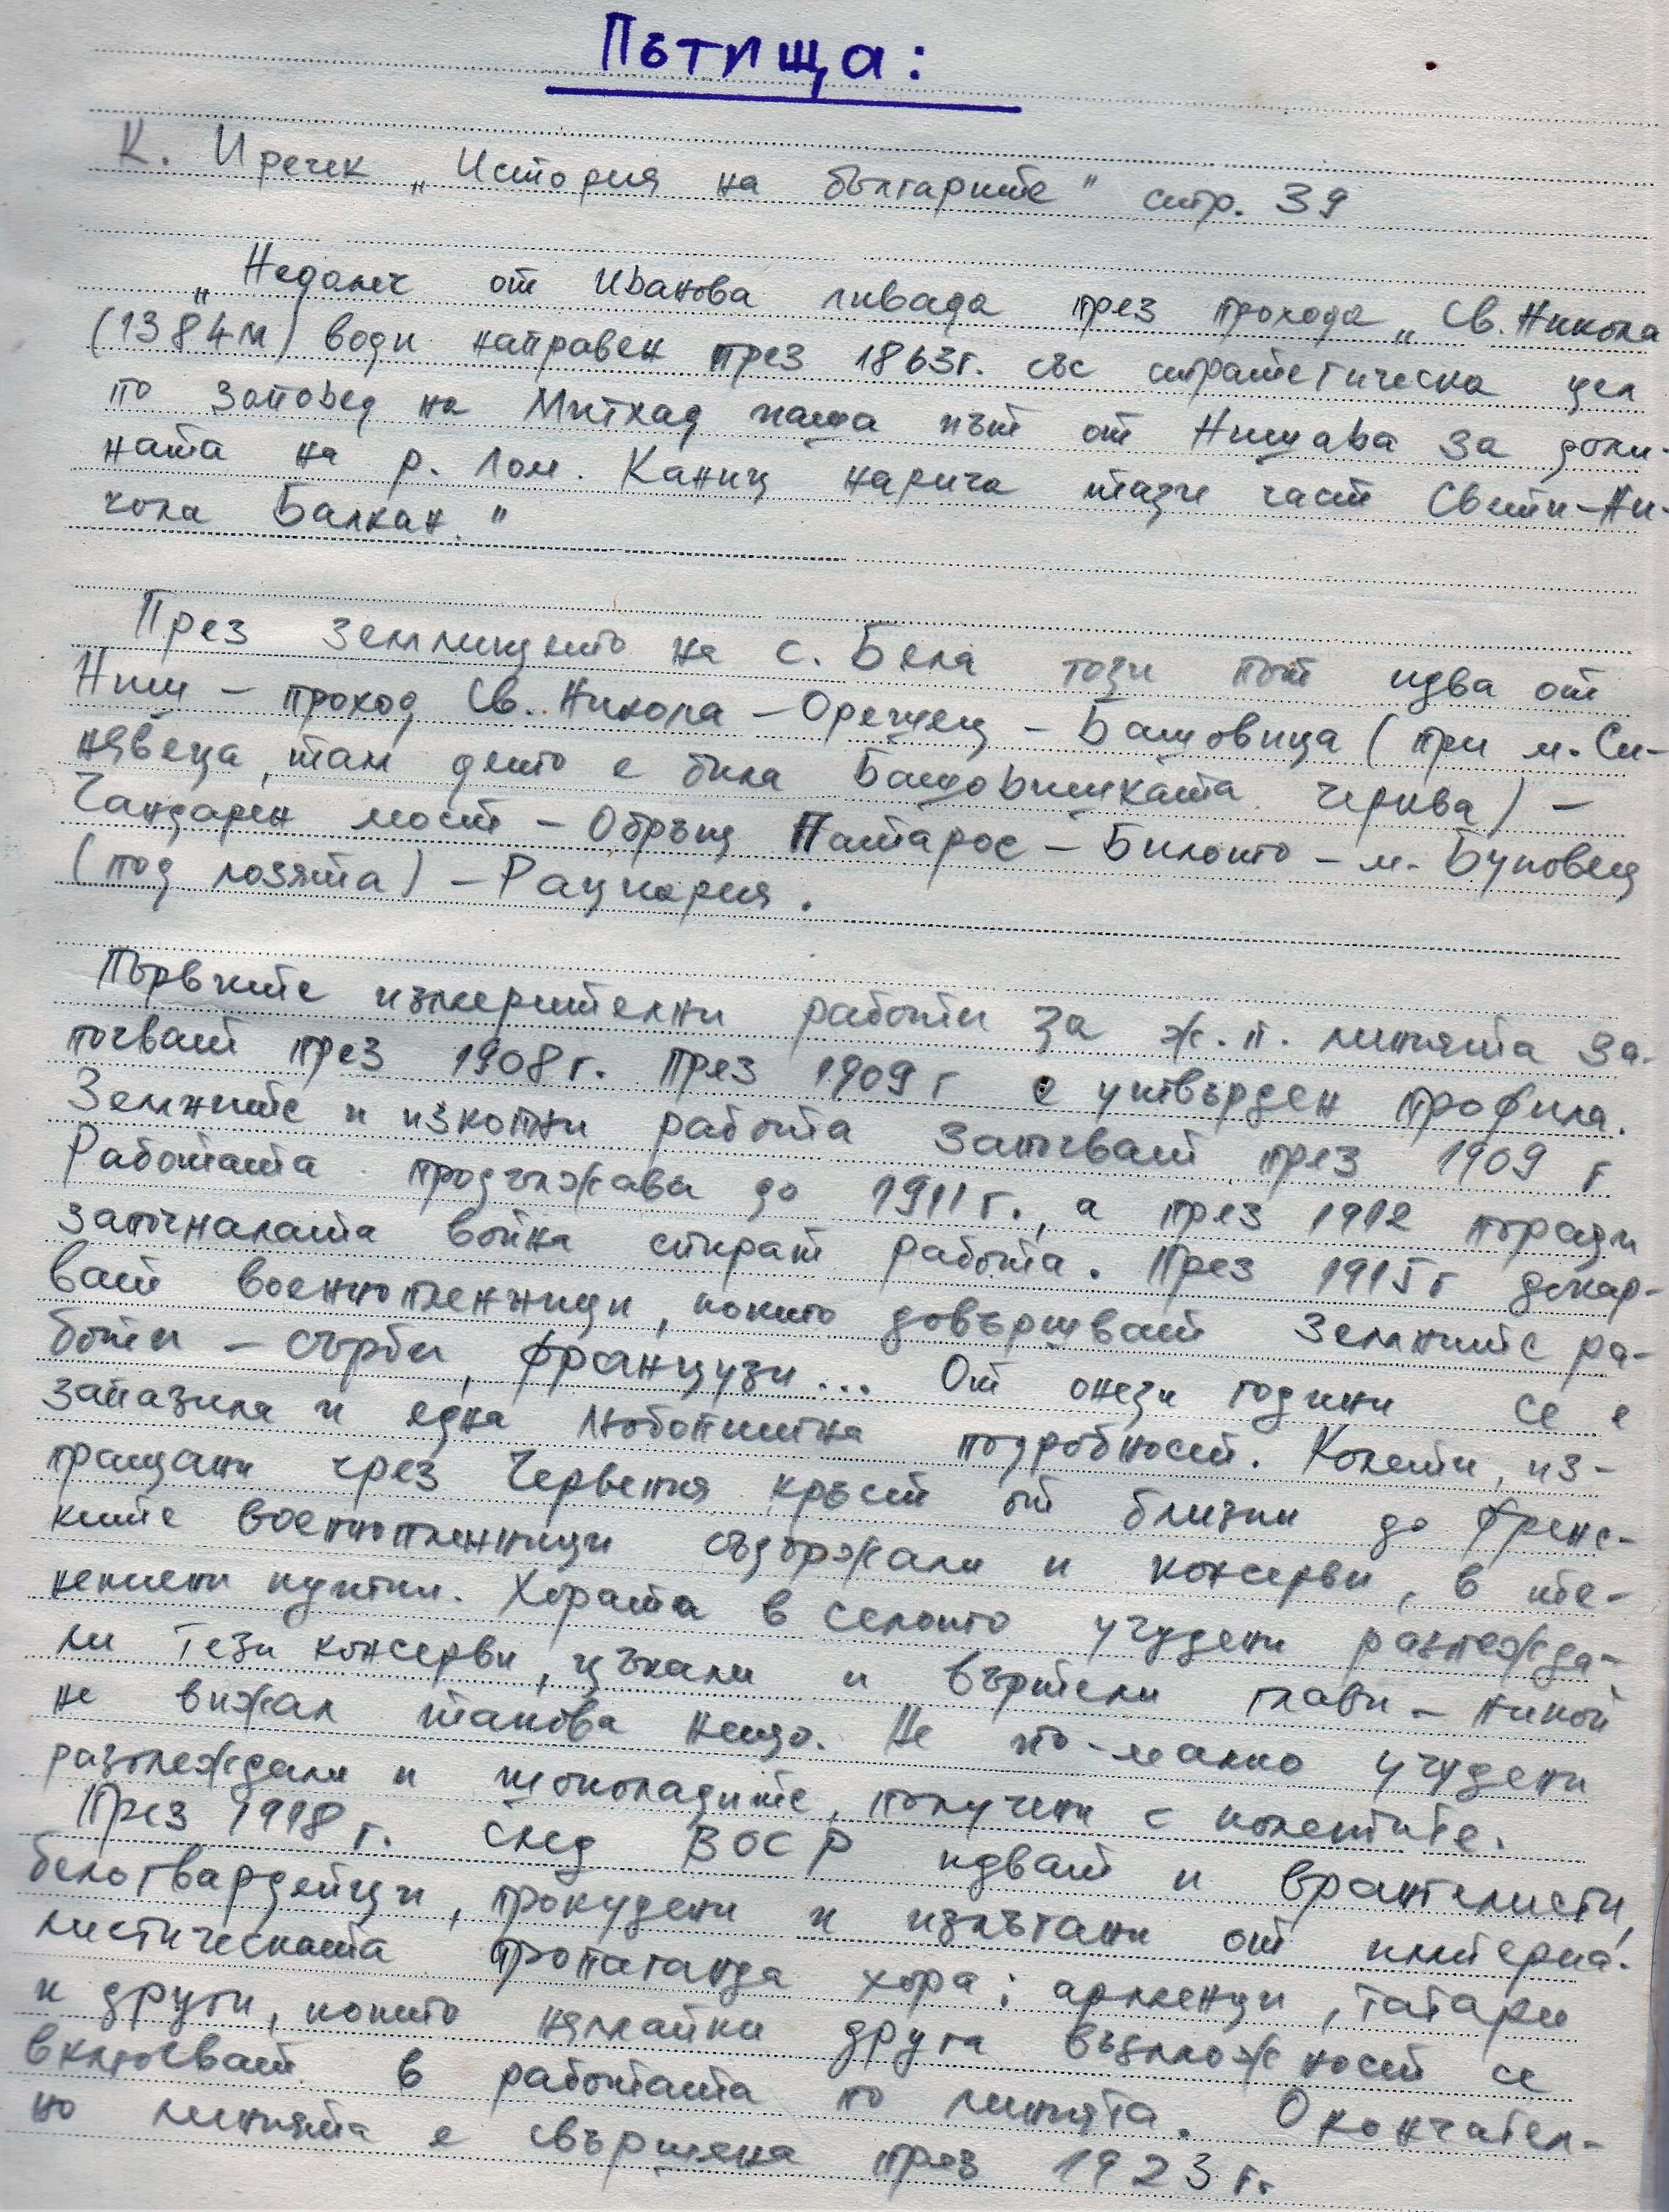 Пътища:
К. Иречек „История на българите" стр. 39
„Недалеч от Иванова ливада през прохода „Св. Никола
(1384м) води направен през 1863г. със стратегическа цел
по заповед на Митхад паша път от Нишава за доли-
ната на р. Лом. Каниц нарича тази част Свети-Ни-
кола Балкан."
През землището на с. Бела този път идва от
Ниш – проход Св. Никола – Орешец – Башовица (при м. Си-
нявеца, там дето е била Башовишката черква) –
Чандарен мост – Обръщ Патарос – Билото – м. Буковец
(под лозята) – Рациария.
Първите измерителни работи за ж.п. линията за-
почват през 1908г. През 1909г е утвърден профила.
Земните и изкопни работа започват през 1909 г
Работата продължава до 1911г., а през 1912 поради
започналата война спират работа. През 1915г докар-
ват военнопленници, които довършват земните ра-
боти – сърби, французи... От онези години се е
запазила и една любопитна подробност. Колети, из-
пращани чрез Червения кръст от близки до френс-
ките военнопленници съдържали и консерви, в те-
некиени кутии. Хората в селото учудени разглежда-
ли тези консерви, цъкали и въртели глави – никой
не виждал такова нещо. Не по-малко учудени
разглеждали и шоколадите, получени с колетите.
През 1918 г. след ВОСР идват и врангелисти,
белогвардейци, прокудени и излъгани от империа-
листическата пропаганда хора: арменци, татари
и други, които нямайки друга възможност се
включват в работата по линията. Окончател-
но линията е свършена през 1923г.